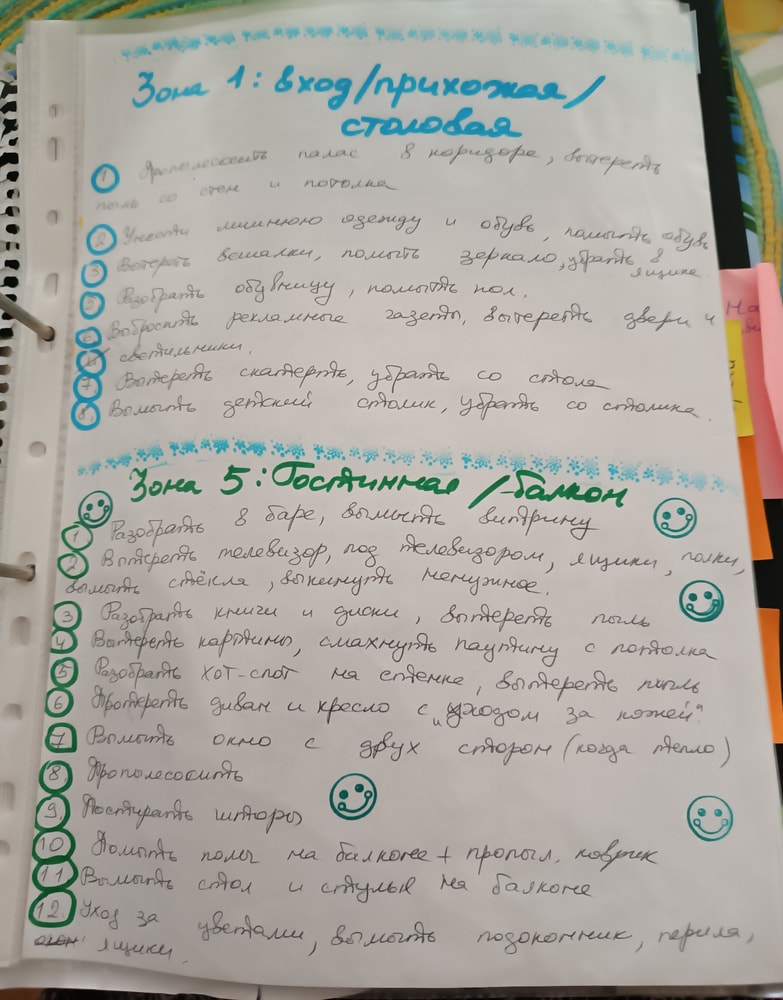 Зона 1: вход/прихожая/
столовая
1 Прополесосить палас в коридоре, вытереть
пыль со стен и потолка
2 Унести лишнюю одежду и обувь, помыть обувь
3 Вытереть вешалки, помыть зеркало, убрать в
ящике.
5 Разобрать обувницу, помыть пол.
6 Выбросить рекламные газеты, вытереть двери и
светильники.
7 Вытереть скатерть, убрать со стола
8. Вымыть детский столик, убрать со столика.
Зона 5: Гостинная/балкон
1 Разобрать в баре, вымыть витрину
2 Вытереть телевизор, под телевизором, ящики, полки,
вымыть стёкла, выкинуть ненужное.
3 Разобрать книги и диски, вытереть пыль
4 Вытереть картины, смахнуть паутину с потолка
5 Разобрать хот-спот на стенке, вытереть пыль
6 Протереть диван и кресло с „уходом за кожей"
7 Вымыть окно с двух сторон (когда тепло)
8. Прополесосить
9. Постирать шторы
10 Помыть полы на балконе + пропыл. коврик
11 Вымыть стол и стулья на балконе
12. Уход за цветами, вымыть подоконник, перила,
ящики.
На